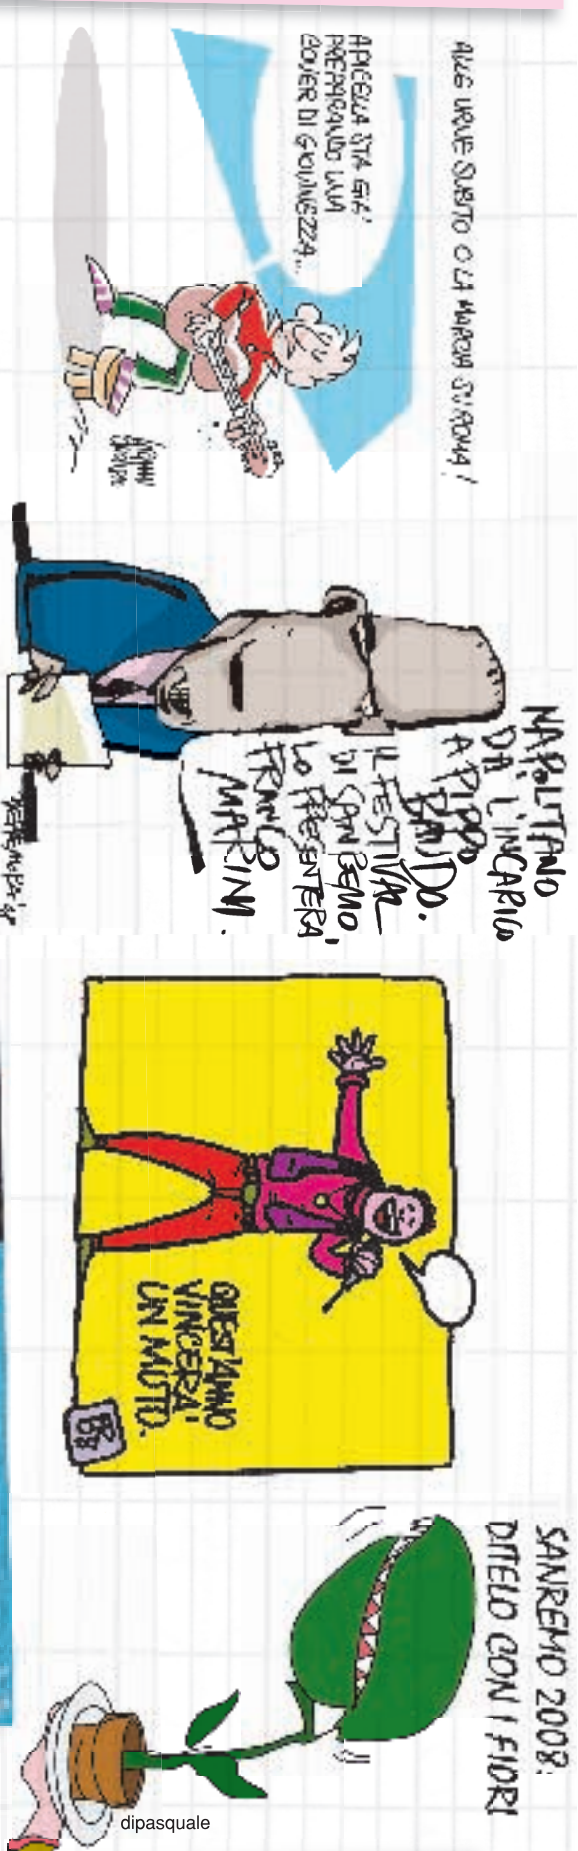 ALLE URNE SUBITO O LA MARCIA SU ROMA!
APICELLA STA GIA'
PREPARANDO UNA
COVER DI GIOVINEZZA...
NAPOLITANO
DA' L'INCARICO
A PIPPO
BAUDO.
IL FESTIVAL
DI SANREMO
LO PRESENTERA'
FRANCO
MARINI.
QUEST'ANNO
VINCERA'
UN MUTO.
SANREMO 2008:
DITELO CON I FIORI
dipasquale